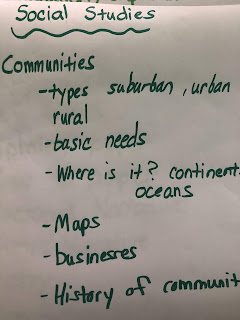 Social Studies
Communities
-types suburban, urban
rural
-basic needs
-Where is it? continent
oceans
-Maps
-businesses
-History of communit